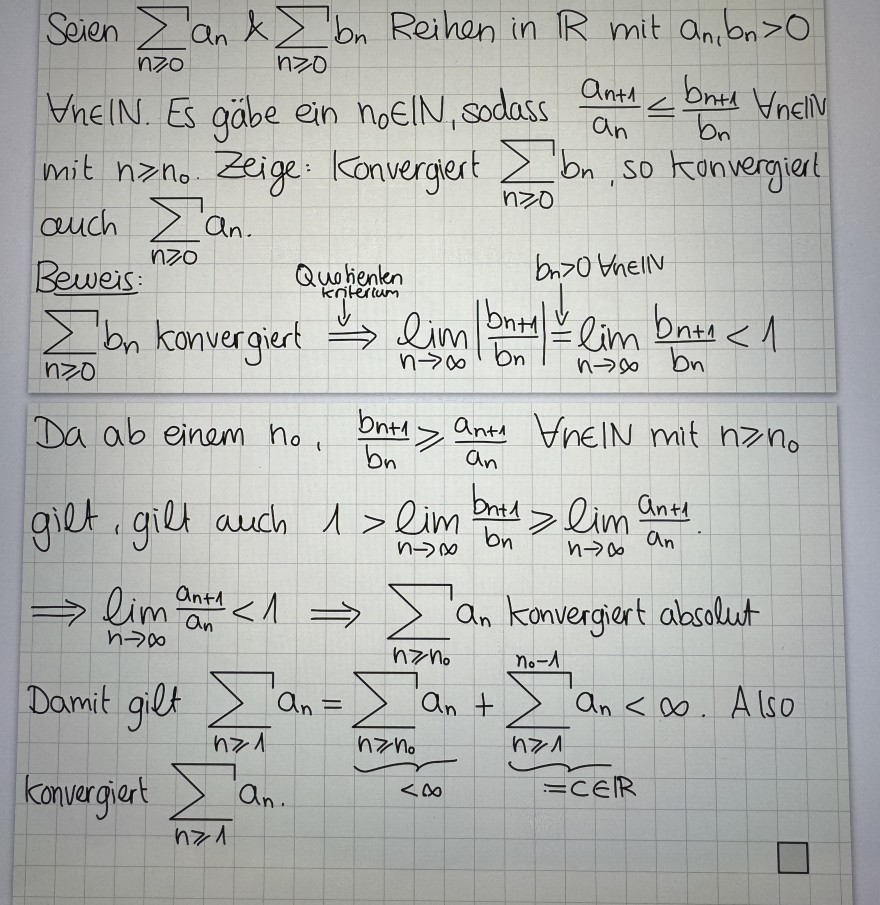 Seien ∑_{n≥0} a_n & ∑_{n≥0} b_n Reihen in ℝ mit a_n, b_n > 0
∀n∈ℕ. Es gäbe ein n_0∈ℕ, sodass a_{n+1}/a_n ≤ b_{n+1}/b_n ∀n∈ℕ
mit n ≥ n_0. Zeige: Konvergiert ∑_{n≥0} b_n, so konvergiert
auch ∑_{n≥0} a_n.
Beweis:
Quotienten
kriterium
b_n>0 ∀n∈ℕ
∑_{n≥0} b_n konvergiert ⟹ lim_{n→∞} |b_{n+1}/b_n| = lim_{n→∞} b_{n+1}/b_n < 1
Da ab einem n_0, b_{n+1}/b_n ≥ a_{n+1}/a_n ∀n∈ℕ mit n ≥ n_0
gilt, gilt auch 1 > lim_{n→∞} b_{n+1}/b_n ≥ lim_{n→∞} a_{n+1}/a_n.
⟹ lim_{n→∞} a_{n+1}/a_n < 1 ⟹ ∑_{n≥n_0} a_n konvergiert absolut
Damit gilt ∑_{n≥1} a_n = ∑_{n≥n_0} a_n + ∑_{n≥1}^{n_0-1} a_n < ∞. Also
<∞ =C∈ℝ
konvergiert ∑_{n≥1} a_n.
□